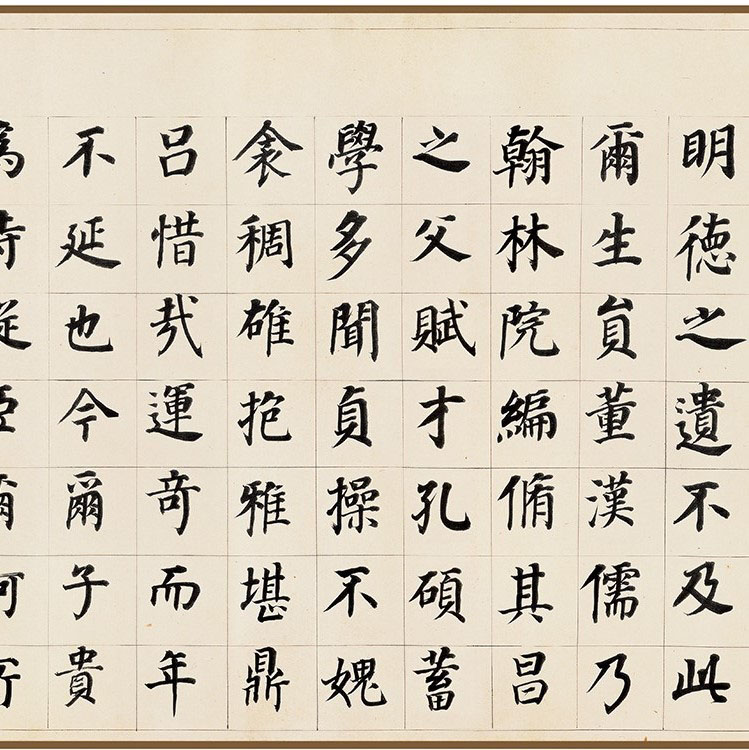 明德之遺不及此
爾生貟董漢儒乃
翰林院編脩其昌
之父賦才孔碩蓄
學多聞貞操不媿
衾稠雄抱雅堪鼎
呂惜哉運竒而年
不延也今爾子貴